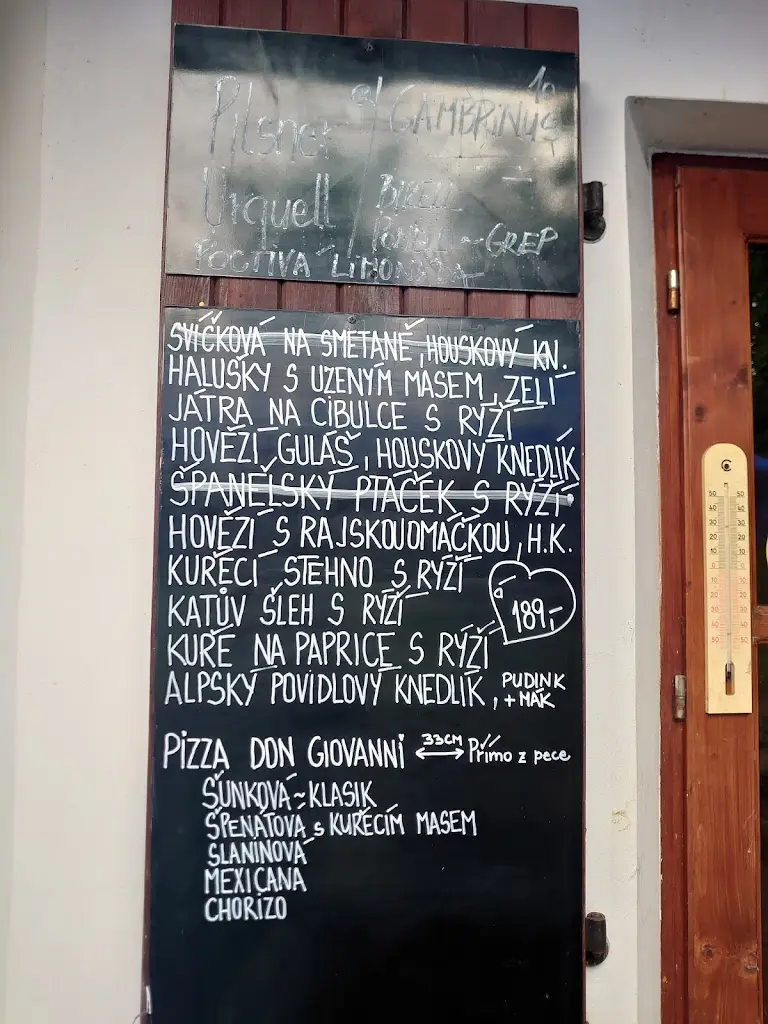 Pilsner
Urquell
GAMBRINUS 10
BIRELL
POMELO~GREP
POCTIVÁ LIMONÁDA
SVÍČKOVÁ NA SMETANĚ, HOUSKOVÝ KN.
HALUŠKY S UZENÝM MASEM, ZELÍ
JÁTRA NA CIBULCE S RÝŽÍ
HOVĚZÍ GULÁŠ, HOUSKOVÝ KNEDLÍK
ŠPANĚLSKÝ PTÁČEK S RÝŽÍ
HOVĚZÍ S RAJSKOU OMÁČKOU, H.K.
KUŘECÍ STEHNO S RÝŽÍ
KATŮV ŠLEH S RÝŽÍ
á 189,-
KUŘE NA PAPRICE S RÝŽÍ
ALPSKÝ POVIDLOVÝ KNEDLÍK, PUDINK
+ MÁK
PIZZA DON GIOVANNI 33CM Přímo z pece
ŠUNKOVÁ ~ KLASIK
ŠPENÁTOVÁ s KUŘECÍM MASEM
SLANINOVÁ
MEXICANA
CHORIZO